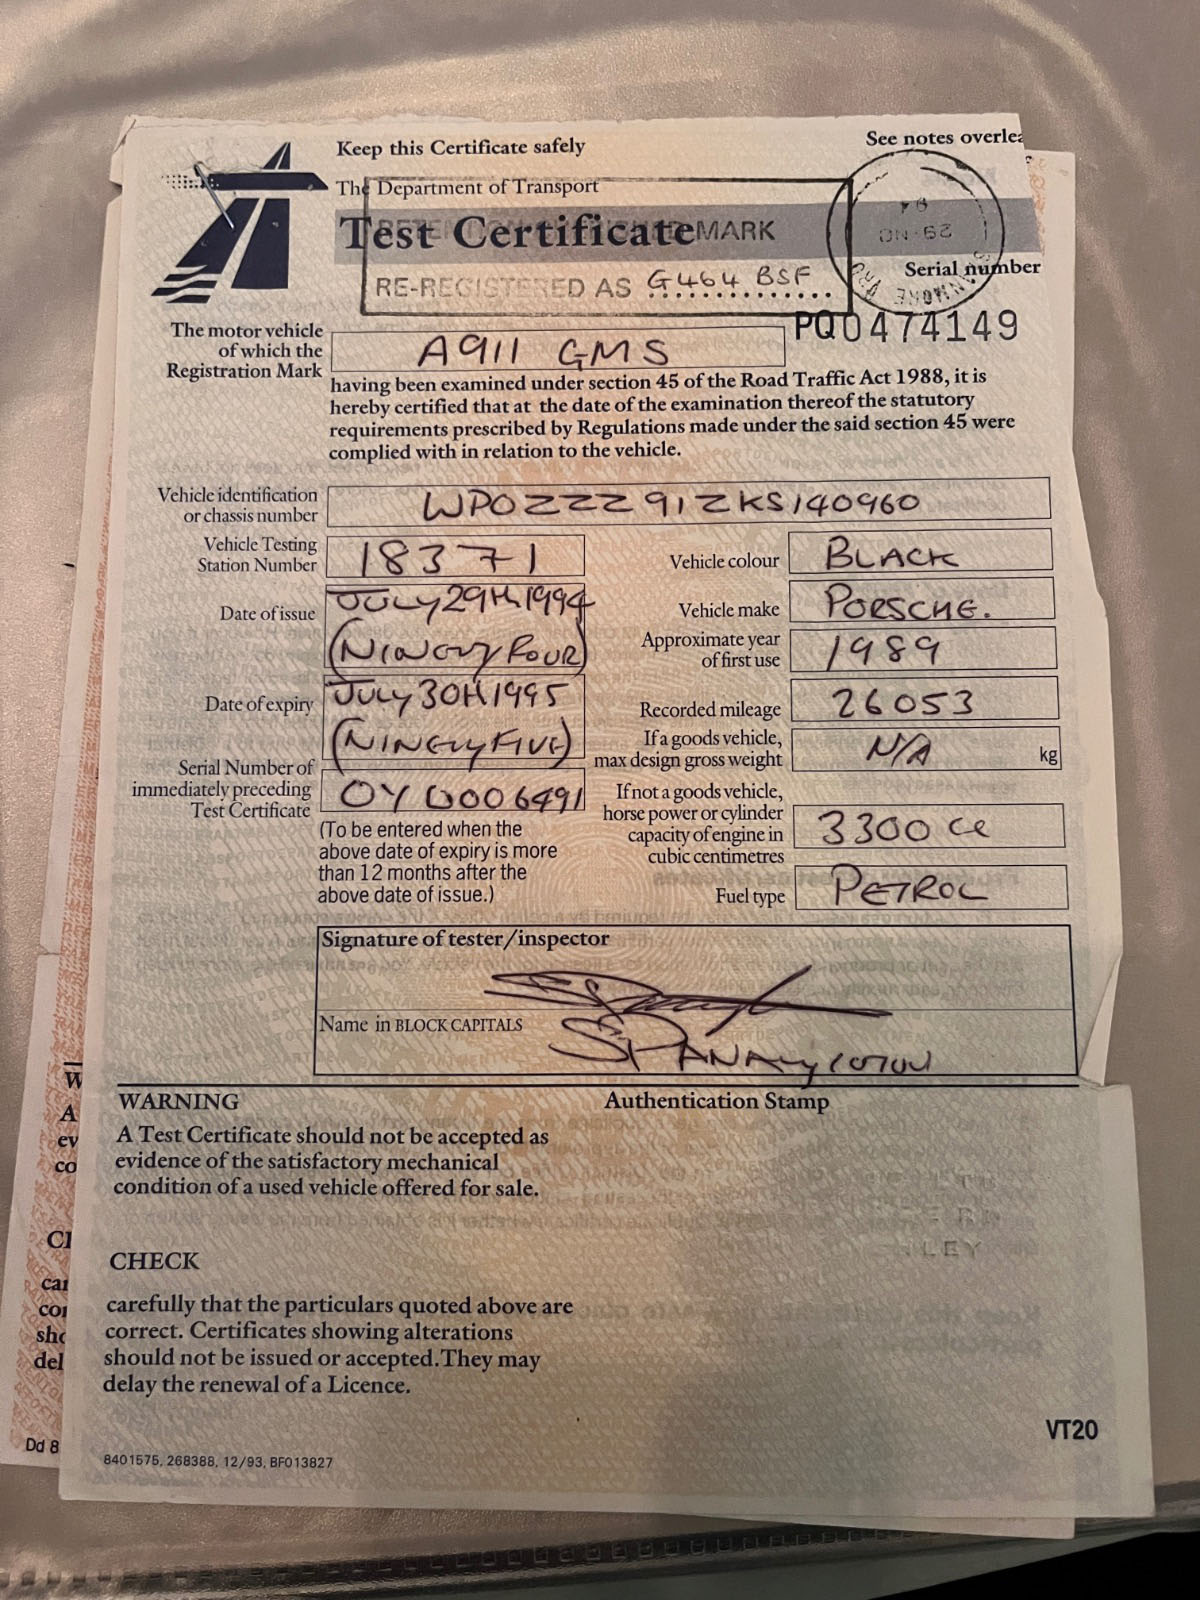 Keep this Certificate safely
See notes overlea
The Department of Transport
Test Certificate
MARK
RE-REGISTERED AS G464 BSF
94
29-NO
Serial number
PQ0474149
The motor vehicle
of which the
Registration Mark
A911 GMS
having been examined under section 45 of the Road Traffic Act 1988, it is
hereby certified that at the date of the examination thereof the statutory
requirements prescribed by Regulations made under the said section 45 were
complied with in relation to the vehicle.
Vehicle identification
or chassis number
WPOZZZ91ZKS140960
Vehicle Testing
Station Number
18371
Vehicle colour
BLACK
Date of issue
JULY 29TH 1994
(NINETY FOUR)
Vehicle make
PORSCHE.
Approximate year
of first use
1989
Date of expiry
JULY 30TH 1995
(NINETY FIVE)
Recorded mileage
26053
If a goods vehicle,
max design gross weight
N/A
kg
Serial Number of
immediately preceding
Test Certificate
OY0006491
(To be entered when the
above date of expiry is more
than 12 months after the
above date of issue.)
If not a goods vehicle,
horse power or cylinder
capacity of engine in
cubic centimetres
3300 cc
Fuel type
PETROL
Signature of tester/inspector
Name in BLOCK CAPITALS
WARNING
A Test Certificate should not be accepted as
evidence of the satisfactory mechanical
condition of a used vehicle offered for sale.
Authentication Stamp
CHECK
carefully that the particulars quoted above are
correct. Certificates showing alterations
should not be issued or accepted. They may
delay the renewal of a Licence.
VT20
8401575, 268388, 12/93, BF013827
W
A
ev
co
car
sho
del
Dd 8